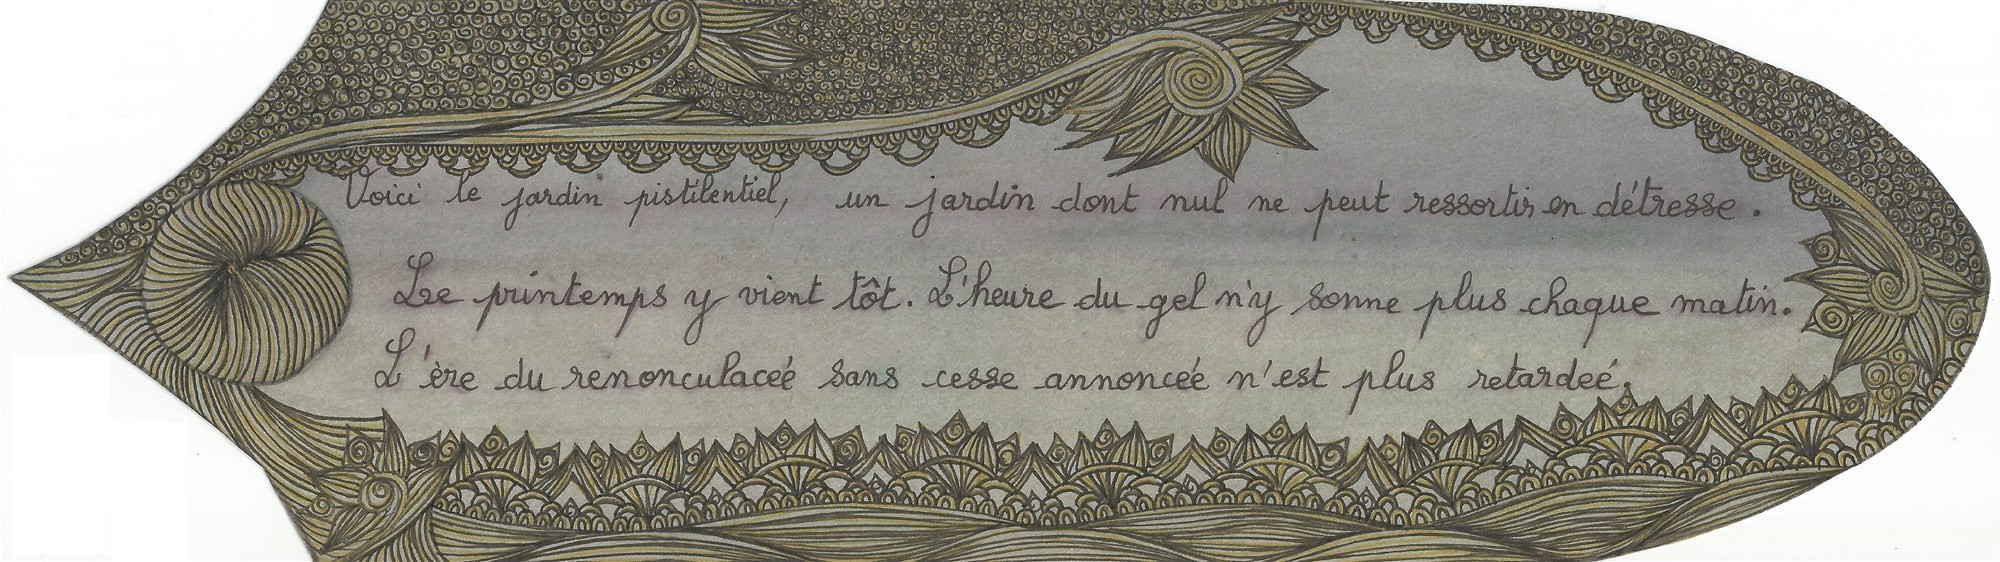 Voici le jardin pistilentiel, un jardin dont nul ne peut ressortir en détresse.
Le printemps y vient tôt. L'heure du gel n'y sonne plus chaque matin.
L'ère du renonculaceé sans cesse annonceé n'est plus retardeé.